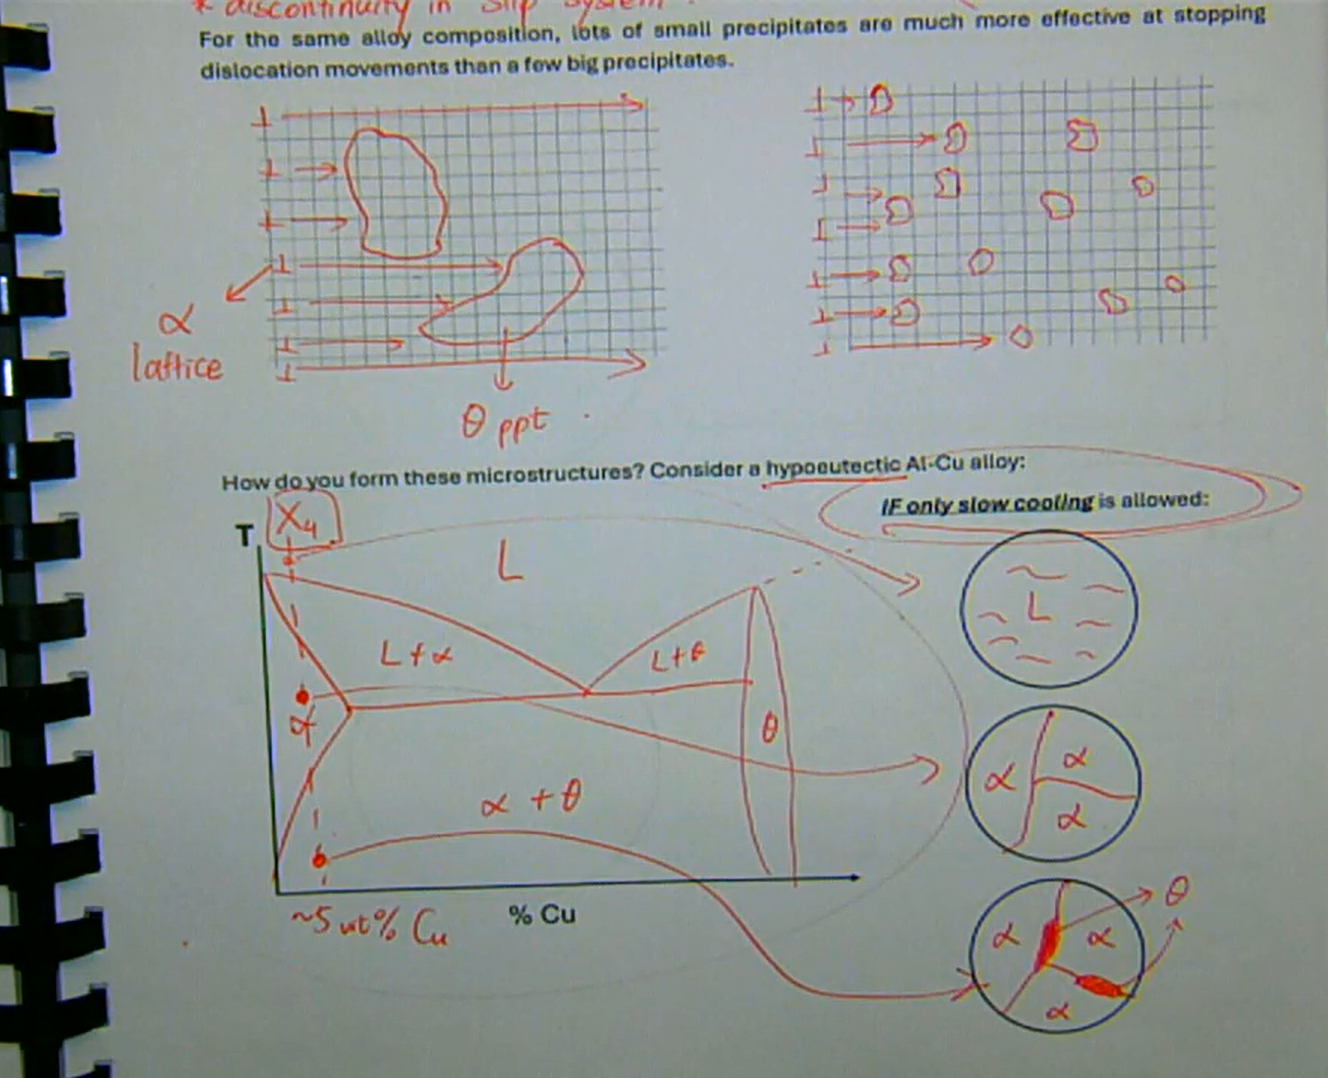 * discontinuity in slip system.
For the same alloy composition, lots of small precipitates are much more effective at stopping
dislocation movements than a few big precipitates.
α
lattice
θ ppt
How do you form these microstructures? Consider a hypoeutectic Al-Cu alloy:
IF only slow cooling is allowed:
T
X4
L
L
L + α
L + θ
α
θ
α
α
α
α + θ
θ
α
α
α
~5 wt% Cu
% Cu